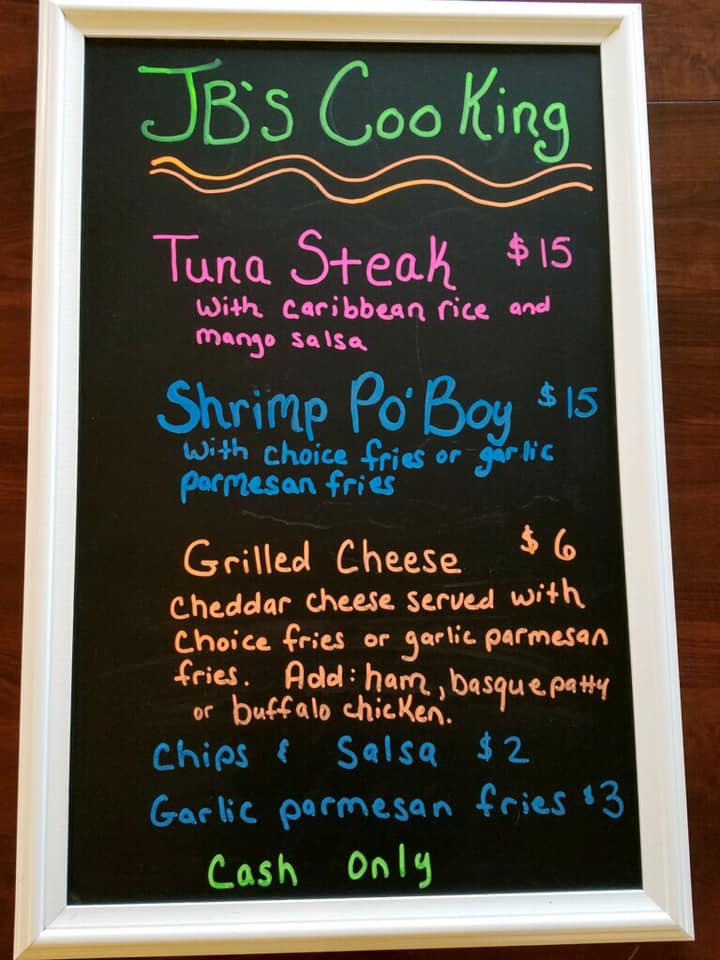 JB's Cooking
Tuna Steak $15
with caribbean rice and
mango salsa
Shrimp Po'Boy $15
with choice fries or garlic
parmesan fries
Grilled Cheese $6
Cheddar cheese served with
choice fries or garlic parmesan
fries. Add: ham, basque patty
or buffalo chicken.
Chips & Salsa $2
Garlic parmesan fries $3
Cash only